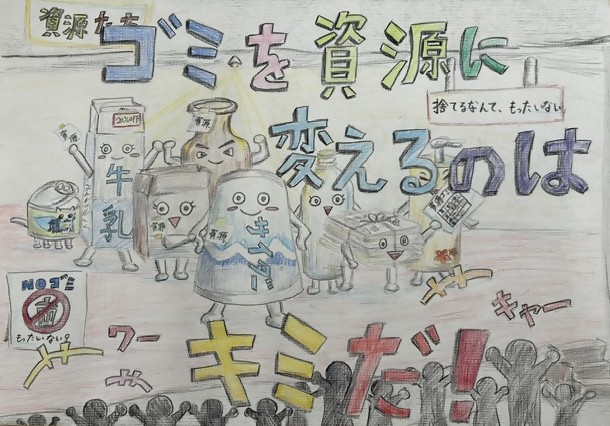 資源たち
ゴミを資源に
捨てるなんて、もったいない
変えるのは
20%OFF
資源
牛乳
資源
キスダー
NOゴミ
もったいない?
ワー
キャー
キミだ!